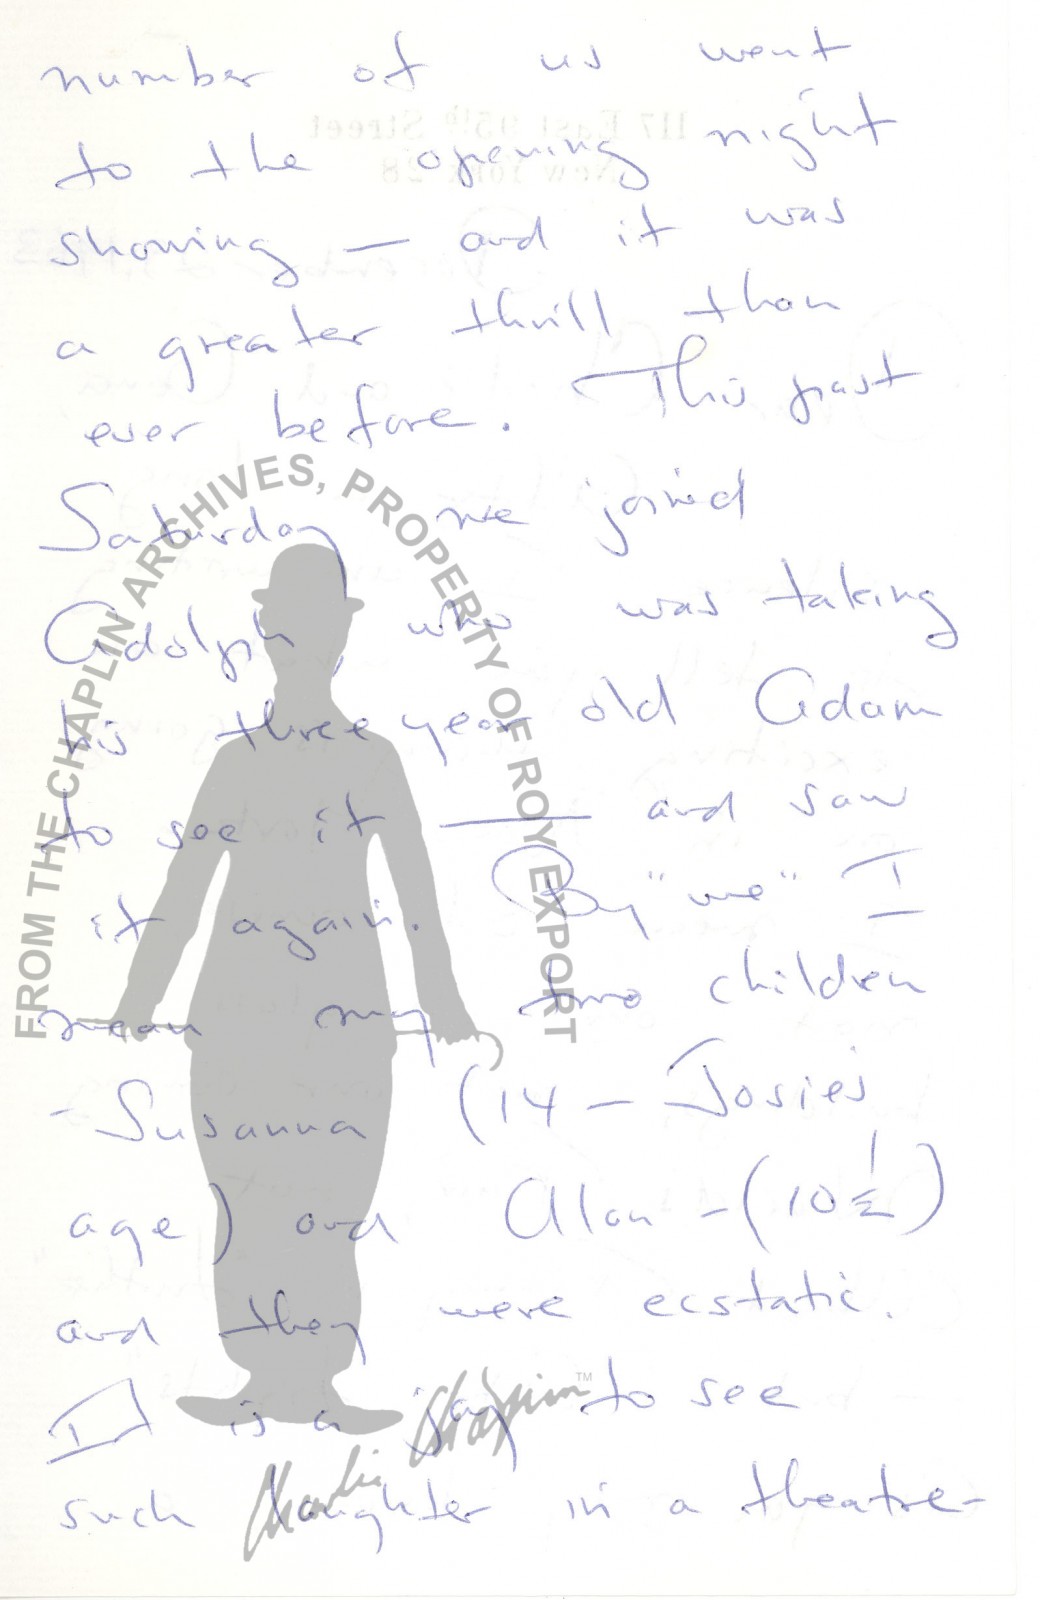 number of us went
to the opening night
showing — and it was
a greater thrill than
ever before. This past
Saturday we joined
Adolph, who was taking
his three year old Adam
to see it — and saw
it again. By "we" I
mean my two children
- Susanna (14 — Josie's
age) and Alan - (10½)
and they were ecstatic.
It is a joy to see
such laughter in a theatre -
117 East 95th Street
New York 28
FROM THE CHAPLIN ARCHIVES, PROPERTY OF ROY EXPORT
Charlie Chaplin™